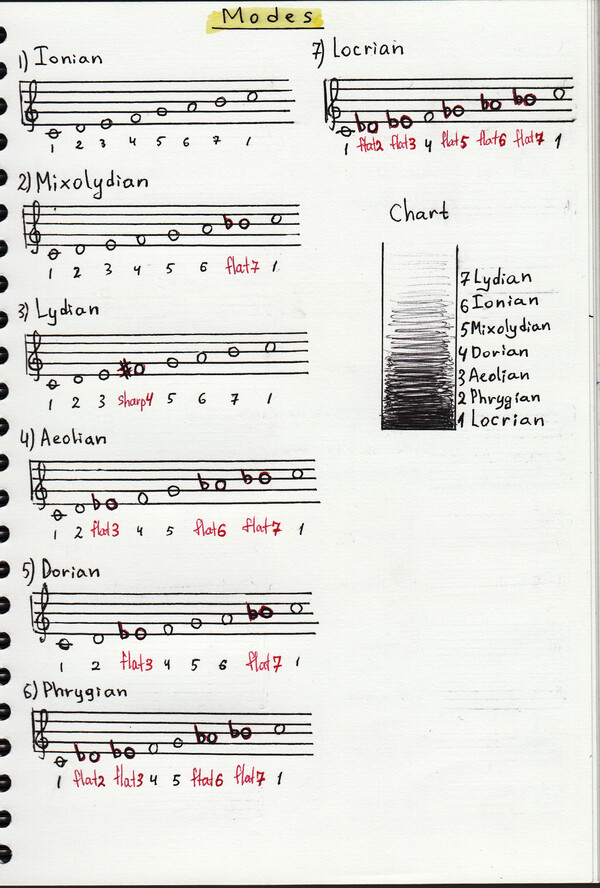 Modes
1) Ionian
1 2 3 4 5 6 7 1
2) Mixolydian
1 2 3 4 5 6 flat7 1
3) Lydian
1 2 3 sharp4 5 6 7 1
4) Aeolian
1 2 flat3 4 5 flat6 flat7 1
5) Dorian
1 2 flat3 4 5 6 flat7 1
6) Phrygian
1 flat2 flat3 4 5 flat6 flat7 1
7) Locrian
1 flat2 flat3 4 flat5 flat6 flat7 1
Chart
7 Lydian
6 Ionian
5 Mixolydian
4 Dorian
3 Aeolian
2 Phrygian
1 Locrian